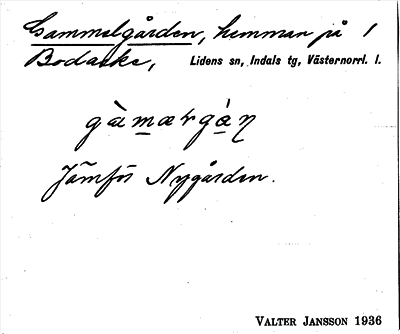 Gammelgården, hemman på 1
Bodacke, Lidens sn, Indals tg, Västernorrl. l.
gàmærgàn̥
Jämför Nygården.
VALTER JANSSON 1936